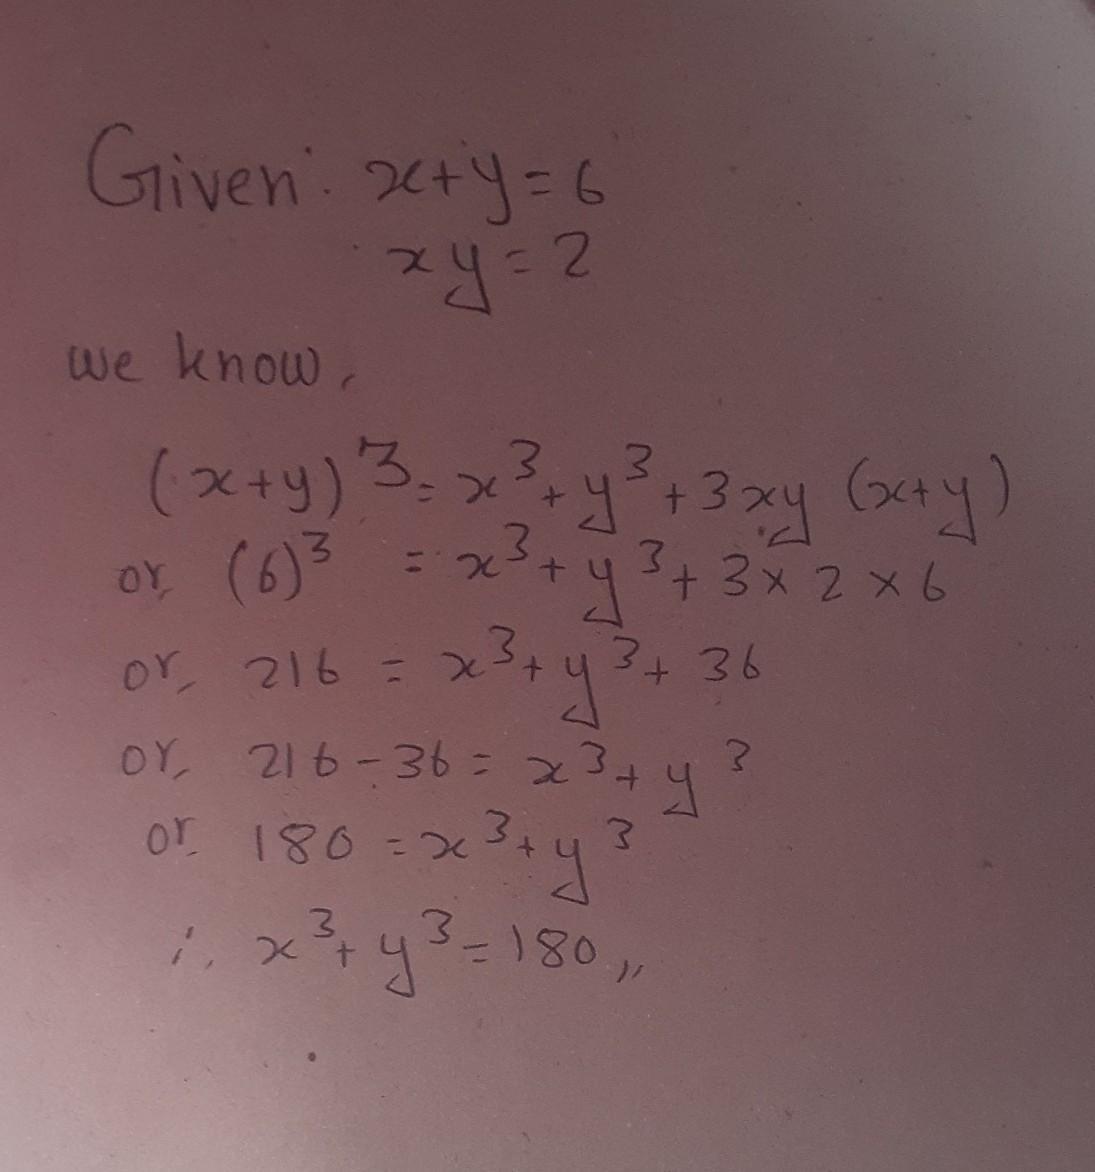 Given: x+y=6
xy=2
we know,
(x+y)³=x³+y³+3xy (x+y)
or, (6)³ = x³+y³+3×2×6
or, 216 = x³+y³+36
or, 216-36= x³+y³
or. 180 =x³+y³
∴ x³+y³=180,,